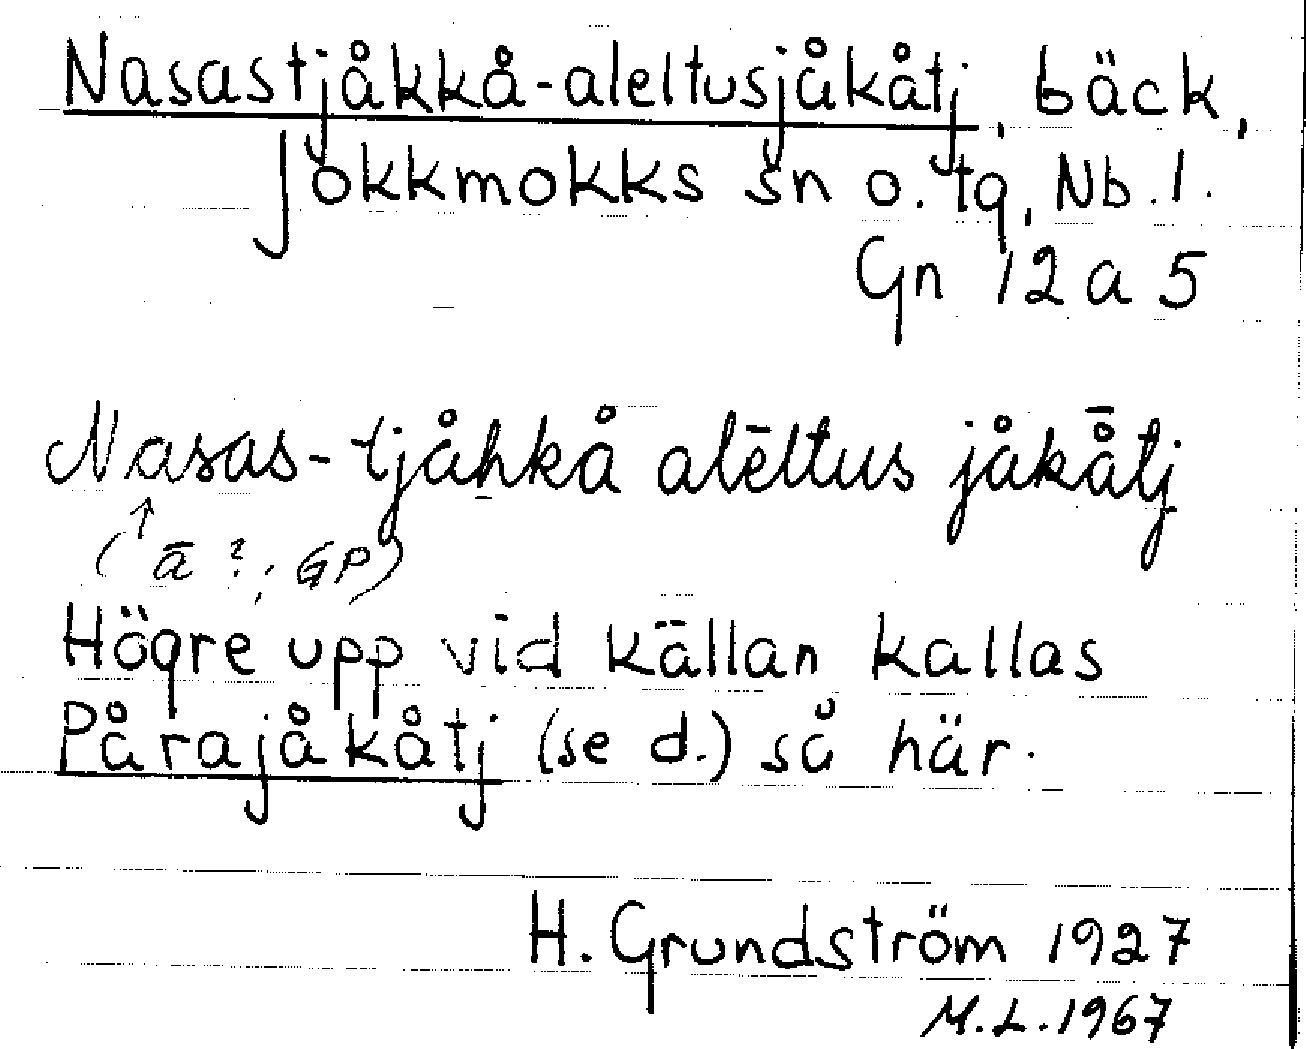 Nasastjåkkå-aleltusjåkåtj, bäck,
Jokkmokks sn o. tg, Nb. l.
Gn 12 a 5
Nasas-tjåhkå alēltus jåkå̄tj
↑
(ā ?; GP)
Högre upp vid källan kallas
Pårajåkåtj (se d.) så här.
H. Grundström 1927
M.L. 1967